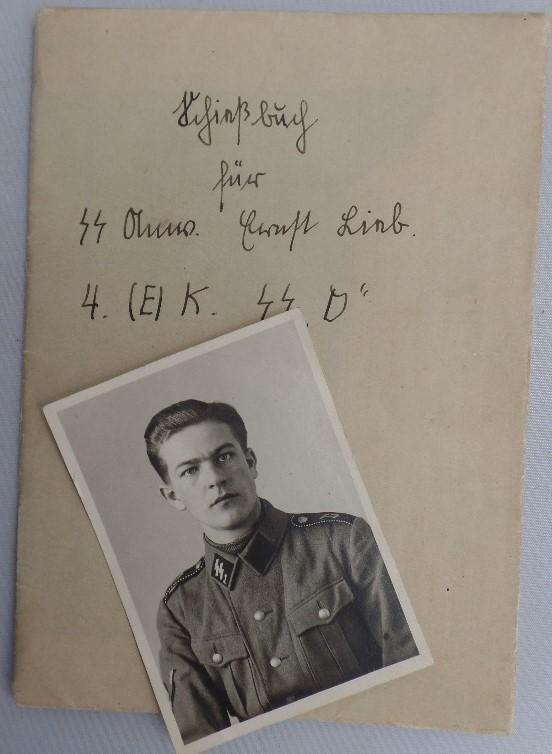 Schießbuch
für
SS Anw. Ernst Lieb.
4. (E) K. SS „D“
SS 1